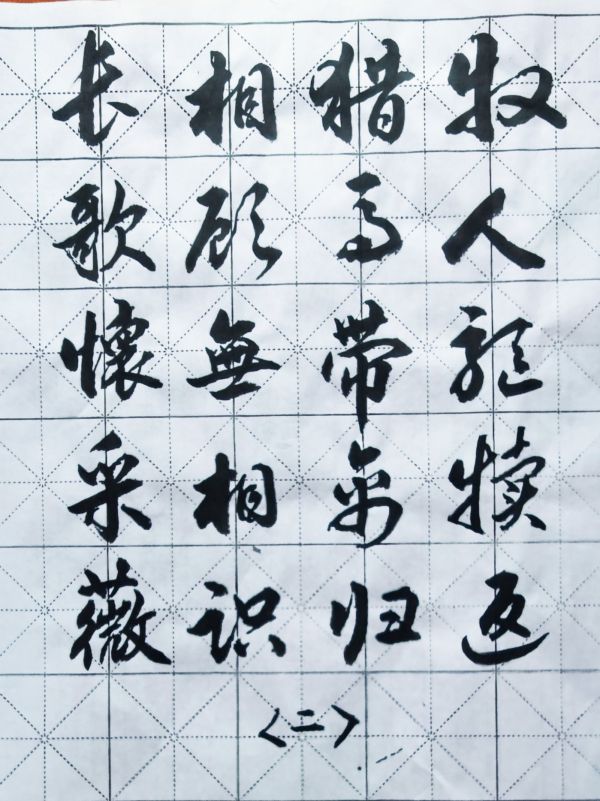 牧人驱犊返
猎马带禽归
相顾無相识
长歌懷采薇
<二>